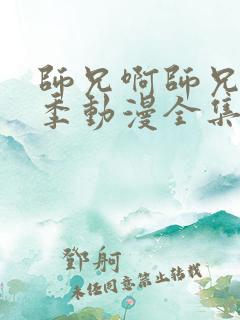 師兄啊師兄
季動漫全集
鄧舸
未任同意禁止轉載